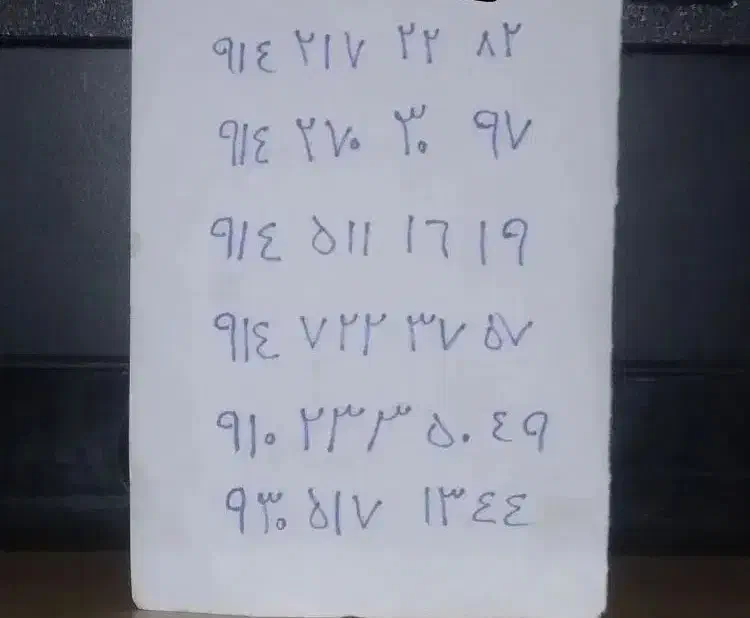 ۹۱٤ ۲۱۷ ۲۲ ۸۲
۹۱٤ ۲۷۰ ۳۰ ۹۷
۹۱٤ ۵۱۱ ۱٦ ۱۹
۹۱٤ ۷۲۲ ۳۷ ۵۷
۹۱۰ ۲۳۳ ۵۰ ٤۹
۹۳۰ ۵۱۷ ۱۳٤٤